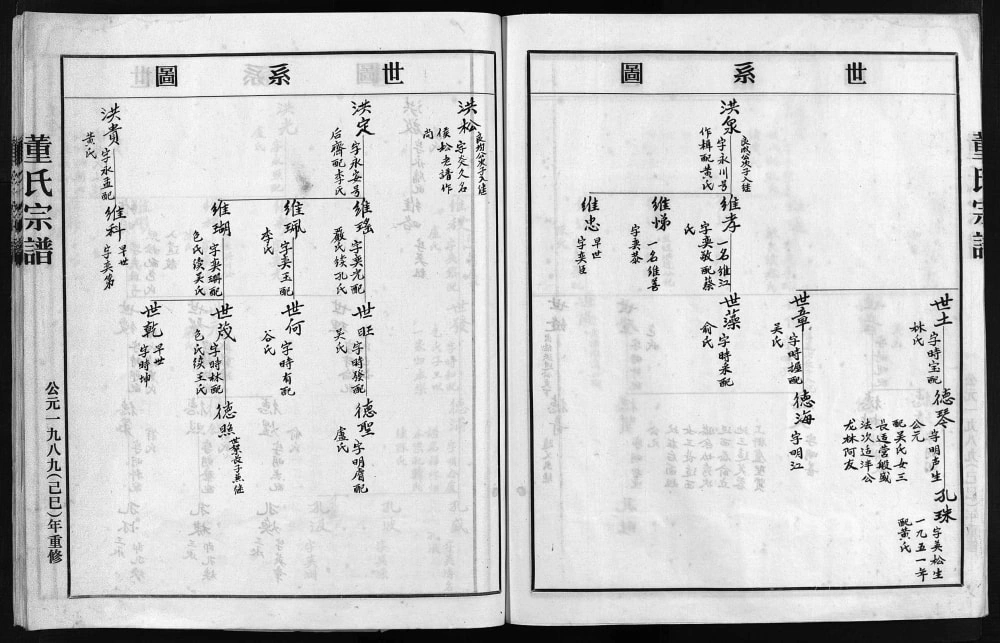 世系圖
洪泉
良欣公次子入继
字永川号
作楫配黄氏
維孝
一名維江
字奕敬配蔡
氏
維悌
一名維善
字奕恭
維忠
早世
字奕臣
世土
字時宝配
林氏
世章
字時握配
吴氏
世藻
字時采配
俞氏
德琴
字明声生
公元
配吴氏女三
長适营殿盛
法次适洋公
尤林阿友
德海
字明江
孔珠
字美松生
一九五一年
配黄氏
董氏宗譜
世系圖
洪松
良均公次子入继
尚
洪定
字永安号
后齊配李氏
洪貴
字永孟配
黄氏
維瑤
字奕光配
嚴氏续孔氏
維珮
字奕玉配
李氏
維瑚
字奕璉配
包氏续吴氏
維科
早世
字奕第
世旺
字時發配
吴氏
世何
字時有配
谷氏
世茂
字時林配
包氏续王氏
世乾
早世
字時坤
德聖
字明膚配
盧氏
德照
世繁長子兼继
董氏宗譜
公元一九八九(己巳)年重修